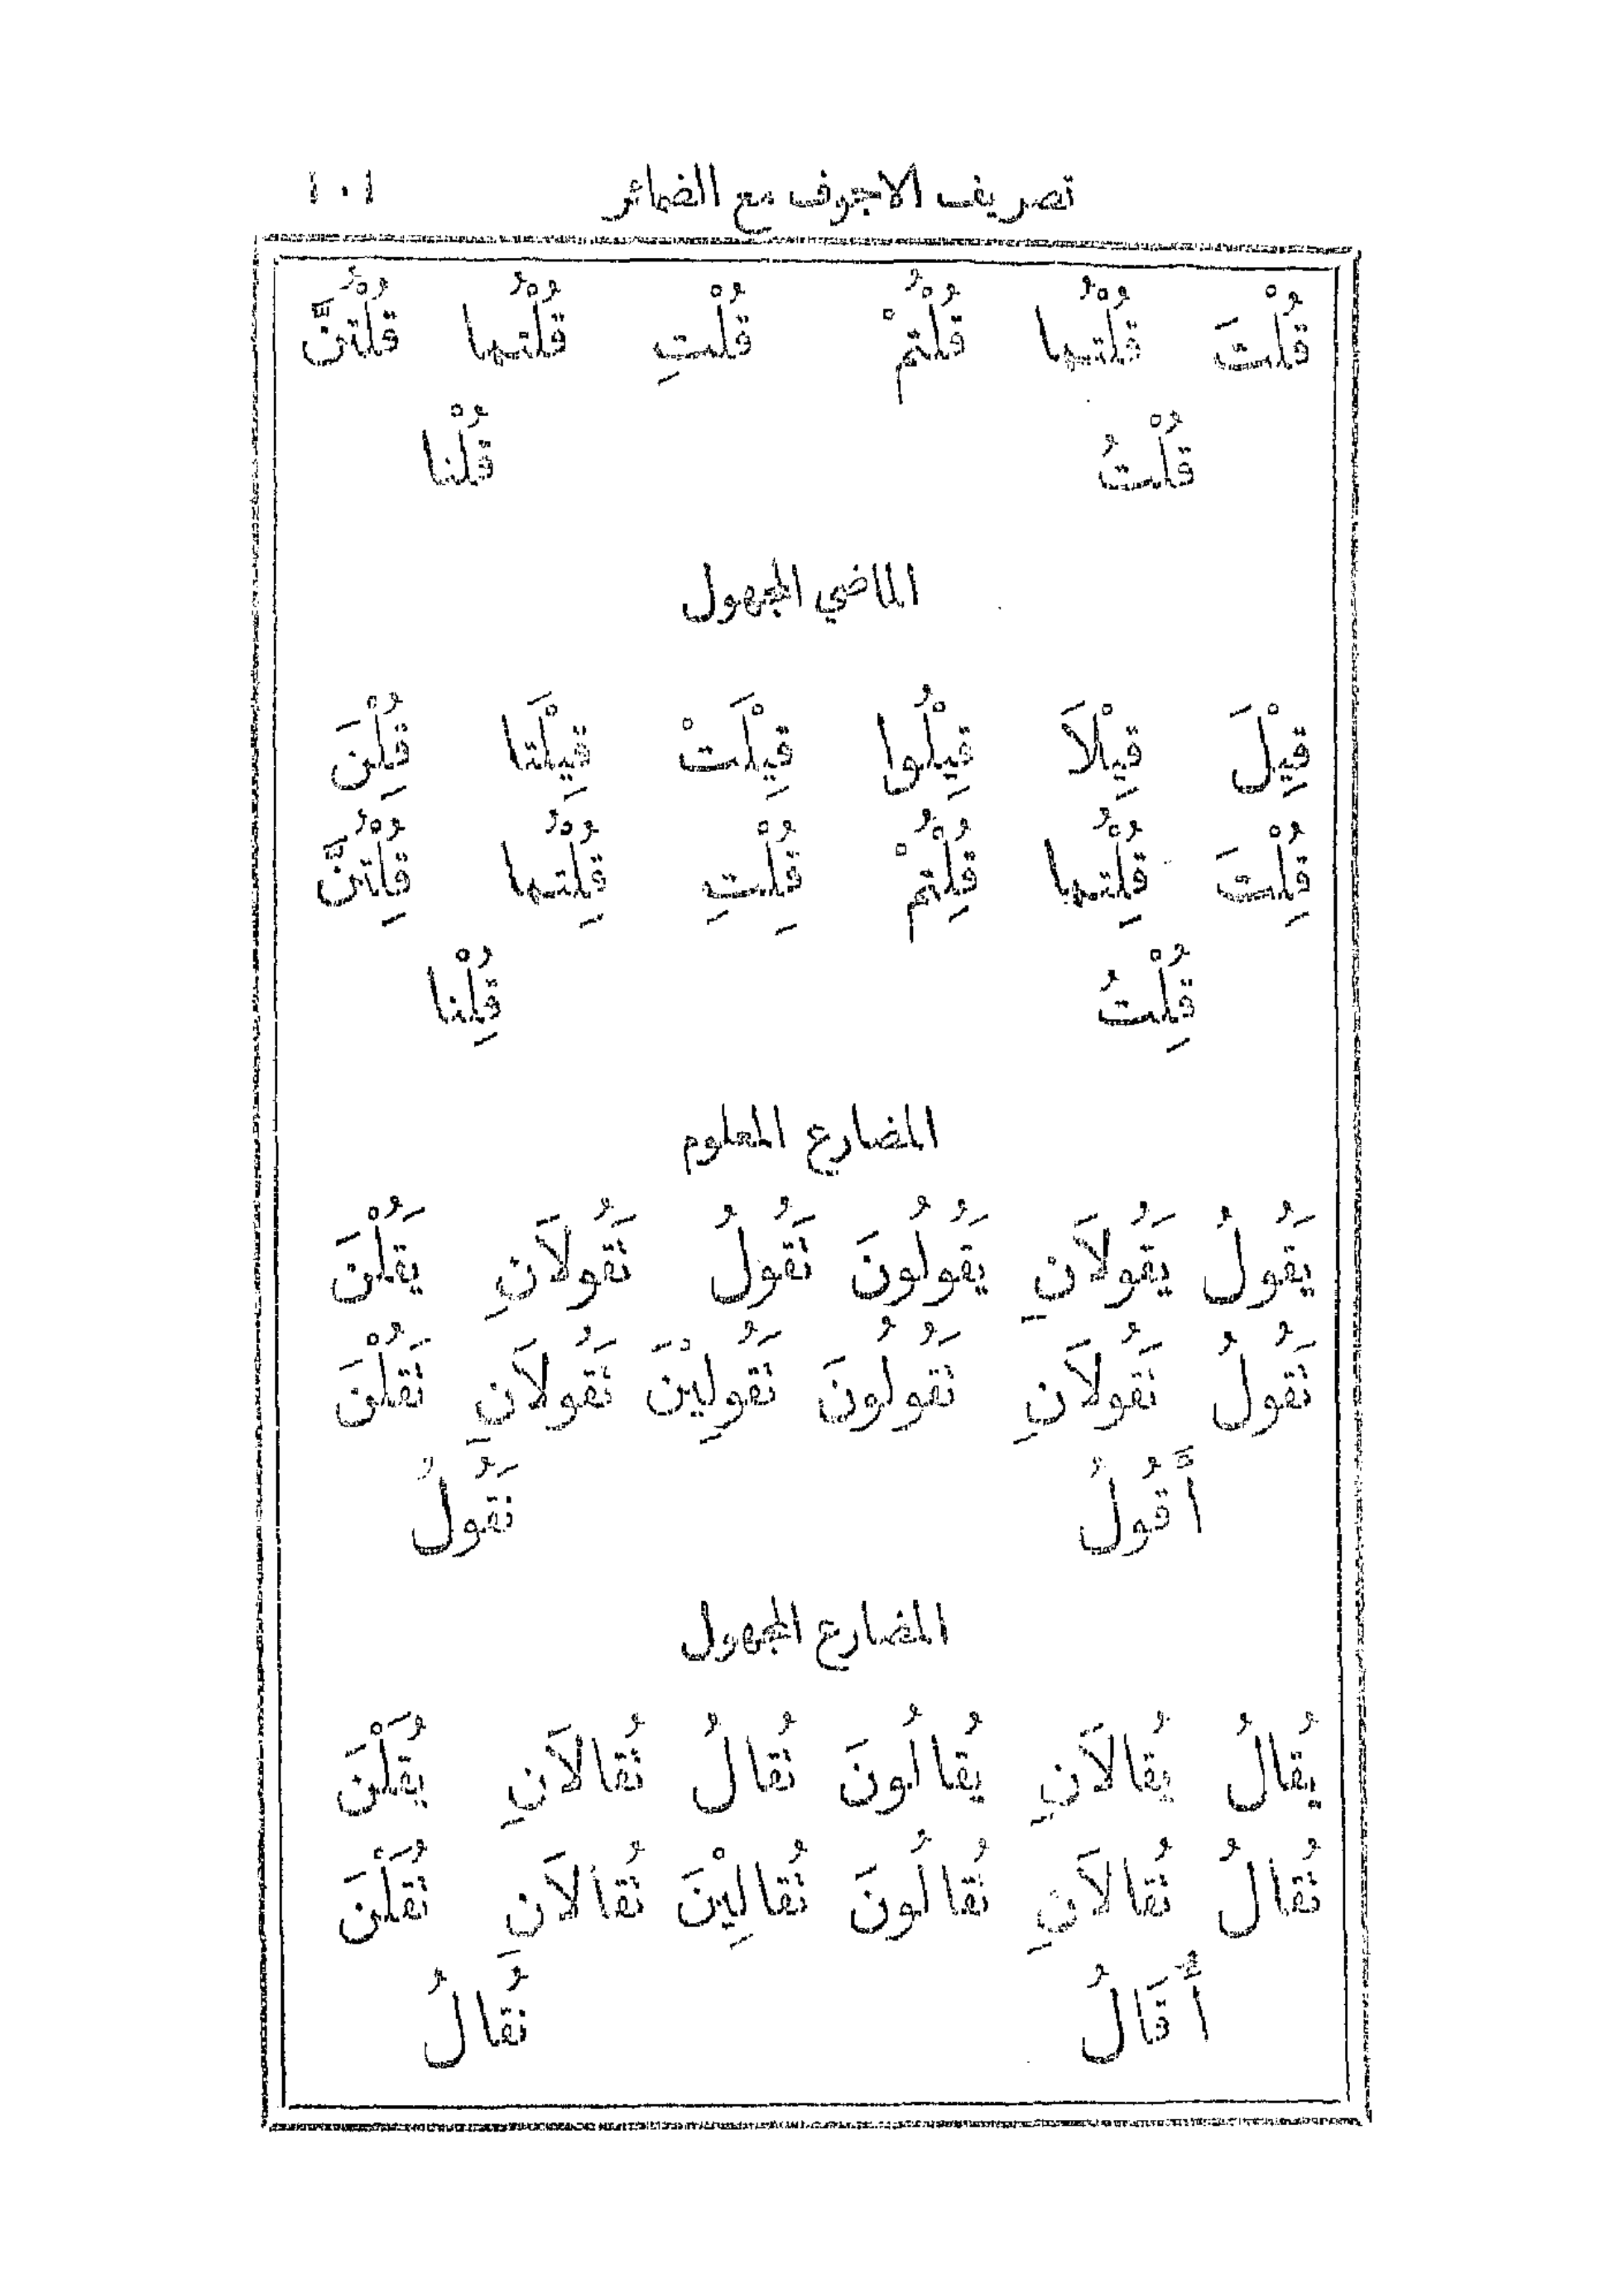 تصريف الاجوف مع الضمائر ١٠١
قُلْتَ قُلْتُما قُلْتُمْ قُلْتِ قُلْتُما قُلْتُنَّ
قُلْتُ قُلْنا
الماضي المجهول
قِيْلَ قِيْلَا قِيْلُوا قِيْلَتْ قِيْلَتا قُلِْنَ
قُلِْتَ قُلِْتُما قُلِْتُمْ قُلِْتِ قُلِْتُما قُلِْتُنَّ
قُلِْتُ قُلِْنا
المضارع المعلوم
يَقُولُ يَقُولَانِ يَقُولُونَ تَقُولُ تَقُولَانِ يَقُلْنَ
تَقُولُ تَقُولَانِ تَقُولُونَ تَقُولِيْنَ تَقُولَانِ تَقُلْنَ
أَقُولُ نَقُولُ
المضارع المجهول
يُقالُ يُقالَانِ يُقالُونَ تُقالُ تُقالَانِ يُقَلْنَ
تُقالُ تُقالَانِ تُقالُونَ تُقالِيْنَ تُقالَانِ تُقَلْنَ
أُقَالُ نُقالُ